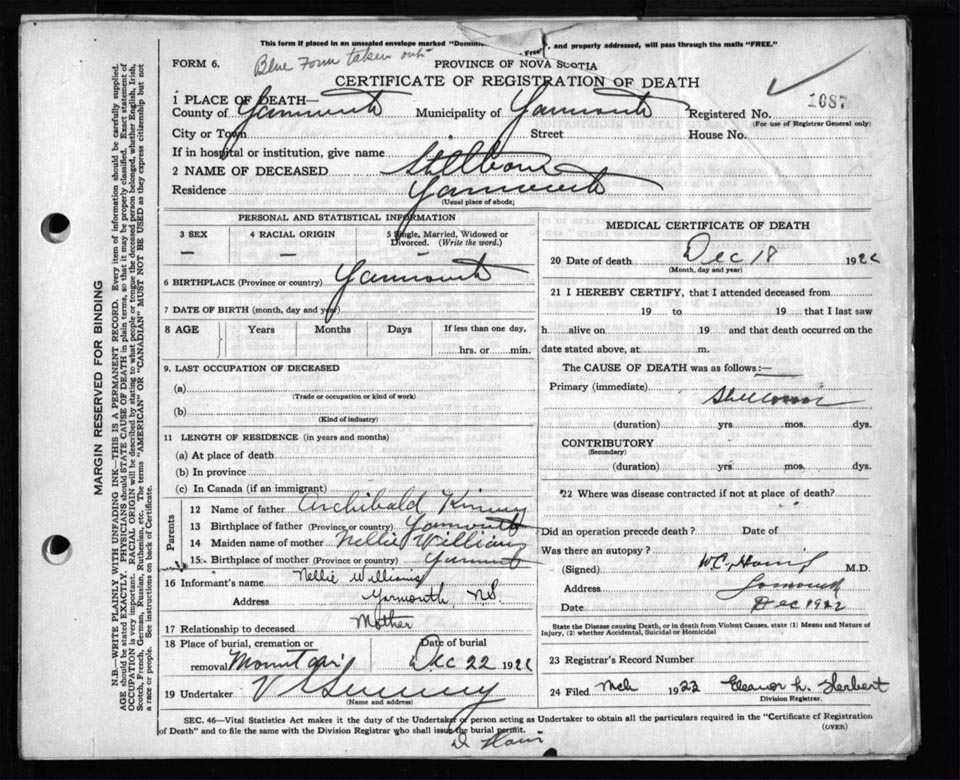 This form if placed in an unsealed envelope marked "Domini Free", and properly addressed, will pass through the mails "FREE."
FORM 6.
Blue Form taken out
PROVINCE OF NOVA SCOTIA
CERTIFICATE OF REGISTRATION OF DEATH
1687
1 PLACE OF DEATH—
County of Yarmouth Municipality of Yarmouth Registered No.
(For use of Registrar General only)
City or Town Street House No.
If in hospital or institution, give name
2 NAME OF DECEASED Stillborn
Residence Yarmouth
(Usual place of abode)
PERSONAL AND STATISTICAL INFORMATION
3 SEX
—
4 RACIAL ORIGIN
—
5 Single, Married, Widowed or Divorced. (Write the word.)
6 BIRTHPLACE (Province or country) Yarmouth
7 DATE OF BIRTH (month, day and year)
8 AGE Years Months Days If less than one day,
hrs. or min.
9. LAST OCCUPATION OF DECEASED
(a)
(Trade or occupation or kind of work)
(b)
(Kind of industry)
11 LENGTH OF RESIDENCE (in years and months)
(a) At place of death
(b) In province
(c) In Canada (if an immigrant)
Parents
12 Name of father Archibald Kinney
13 Birthplace of father (Province or country) Yarmouth
14 Maiden name of mother Nellie Williams
15 Birthplace of mother (Province or country) Yarmouth
16 Informant's name Nellie Williams
Address Yarmouth, N.S.
17 Relationship to deceased Mother
18 Place of burial, cremation or removal Date of burial
Dec 22 192
19 Undertaker
(Name and address)
MEDICAL CERTIFICATE OF DEATH
20 Date of death Dec 18 192
(Month, day and year)
21 I HEREBY CERTIFY, that I attended deceased from
19 to 19 that I last saw
h alive on 19 and that death occurred on
date stated above, at m.
The CAUSE OF DEATH was as follows:—
Primary (immediate) Stillborn
(duration) yrs mos. dys.
CONTRIBUTORY
(Secondary)
(duration) yrs mos. dys.
22 Where was disease contracted if not at place of death?
Did an operation precede death? Date of
Was there an autopsy?
(Signed) W.C. M.D.
Address Yarmouth
Date Dec 1922
State the Disease causing Death, or in death from Violent Causes, state (1) Means and Nature of Injury, (2) whether Accidental, Suicidal or Homicidal
23 Registrar's Record Number
24 Filed Mch 1923 Eleanor L. Herbert
Division Registrar.
SEC. 46—Vital Statistics Act makes it the duty of the Undertaker or person acting as Undertaker to obtain all the particulars required in the "Certificate of Registration
of Death" and to file the same with the Division Registrar who shall issue the burial permit.
(OVER)
MARGIN RESERVED FOR BINDING
N.B.—WRITE PLAINLY WITH UNFADING INK—THIS IS A PERMANENT RECORD. Every item of information should be carefully supplied.
AGE should be stated EXACTLY. PHYSICIANS should STATE CAUSE OF DEATH in plain terms, so that it may be properly classified. Exact statement of
OCCUPATION is very important. RACIAL ORIGIN will be described by stating to what people or tongue the deceased person belonged, whether English, Irish,
Scotch, French, German, Russian, Ruthenian, etc. The terms "AMERICAN" OR "CANADIAN" MUST NOT BE USED as they express citizenship but not
a race or people. See instructions on back of Certificate.